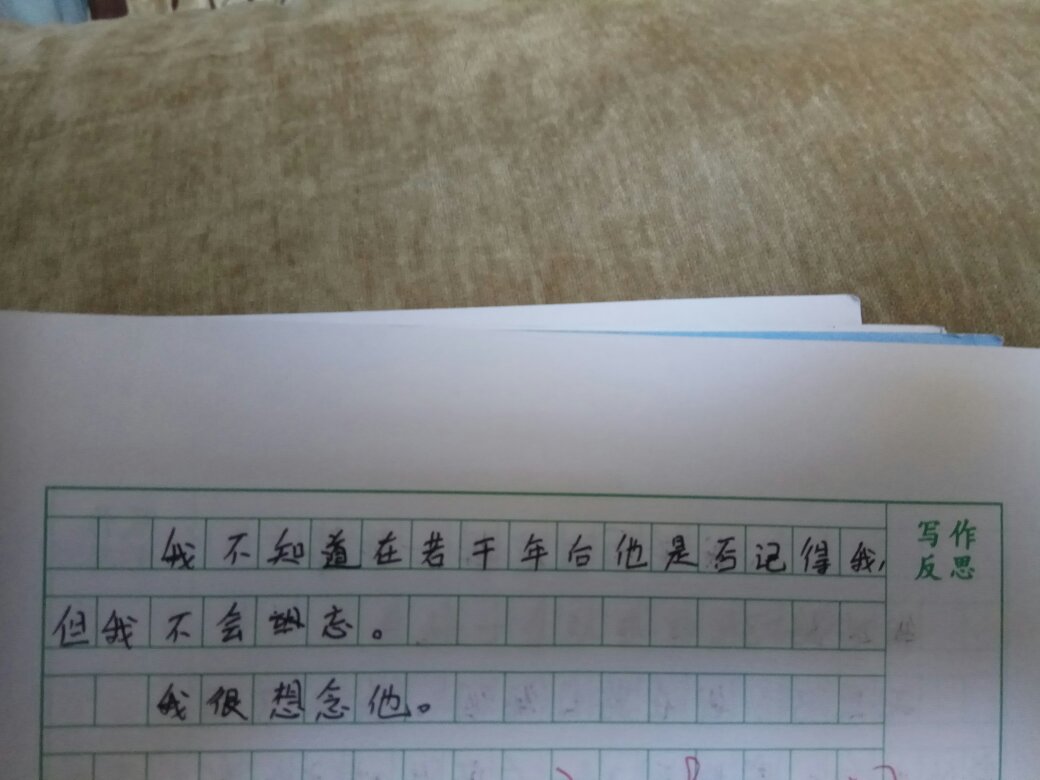 我不知道在若干年后他是否记得我，
但我不会忘。
我很想念他。
写作
反思